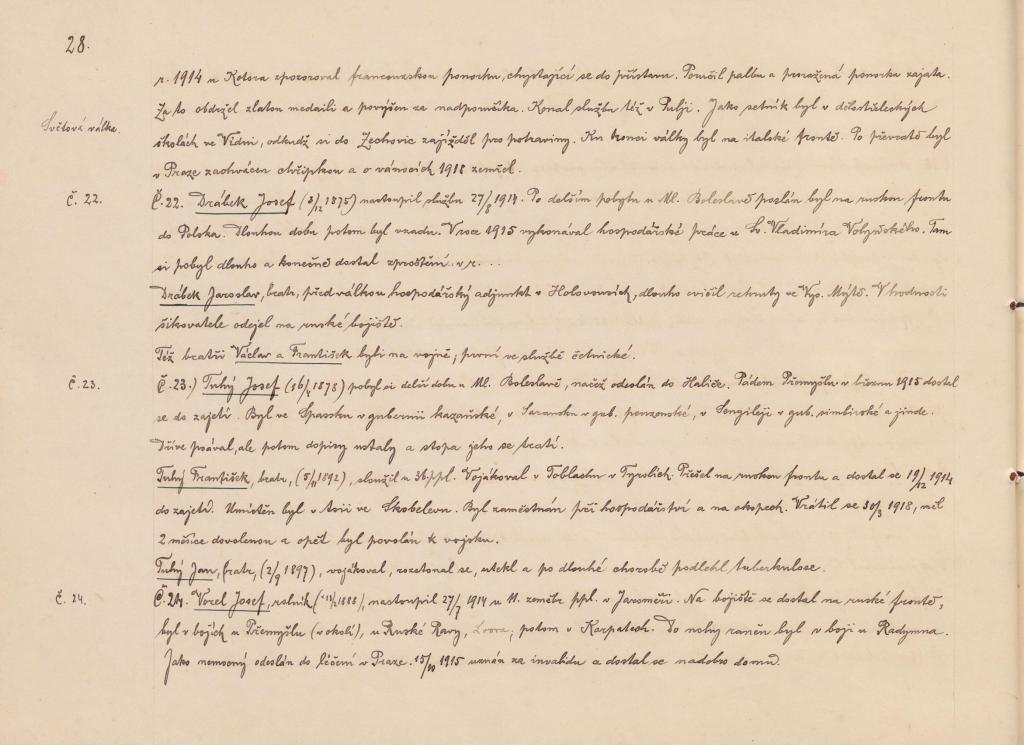 28.
r. 1914 u Kotora zpozoroval francouzskou ponorku, chystající se do přístavu. Poručil palbu a proražená ponorka zajata.
Za to obdržel zlatou medaili a povýšen za nadporučíka. Konal službu též v Pulji. Jako setník byl v dělostřeleckých
Světová válka.
školách ve Vídni, odkudž si do Zechovic zajížděl pro potraviny. Ku konci války byl na italské frontě. Po převratě byl
v Praze zachvácen chřipkou a o vánocích 1918 zemřel.
Č. 22.
Č. 22. Drábek Josef (3/12 1875) nastoupil službu 27/8 1914. Po delším pobytu u Ml. Boleslavě poslán byl na ruskou frontu
do Polska. Dlouhou dobu potom byl vzadu. V roce 1915 vykonával hospodářské práce u Sv. Vladimíra Volyňského. Tam
si pobyl dlouho a konečně dostal zproštění v r. ...
Drábek Jaroslav, bratr, před válkou hospodářský adjunkt v Holovousích, dlouho cvičil rekruty ve Vys. Mýtě. V hodnosti
šikovatele odejel na ruské bojiště.
Též bratři Václav a František byli na vojně; první ve službě četnické.
Č. 23.
Č. 23.) Tuhý Josef (16/ 1878) pobyl si delší dobu u Ml. Boleslavě, načež odeslán do Haliče. Pádem Přemyšlu v březnu 1915 dostal
se do zajetí. Byl ve Spassku v gubernii kazaňské, v Saransku v gub. penzenské, v Sengileji v gub. simbirské a jinde.
Dříve psával, ale potom dopisy ustaly a stopa jeho se tratí.
Tuhý František, bratr, (5/11 1892), sloužil u 36. p. pl. Vojákoval v Toblachu v Tyrolích. Přešel na ruskou frontu a dostal se 19/12 1914
do zajetí. Umístěn byl v Asii ve Skobelevu. Byl zaměstnán při hospodářství a na okopech. Vrátil se 30/3 1918, měl
2 měsíce dovolenou a opět byl povolán k vojsku.
Tuhý Jan, bratr, (2/9 1897), vojákoval, rozstonal se, utekl a po dlouhé chorobě podlehl tuberkulose.
Č. 24.
Č. 24. Vorel Josef, rolník 1888), nastoupil 27/7 1914 u 11. zeměbr. p. pl. v Jaroměři. Na bojiště se dostal na ruské frontě,
byl v bojích u Přemyšlu (v okolí), u Ruské Ravy, Lvova, potom v Karpatech. Do nohy raněn byl v boji u Radymna.
Jako nemocný odeslán do léčení v Praze. 15/10 1915 uznán za invalidu a dostal se nadobro domů.